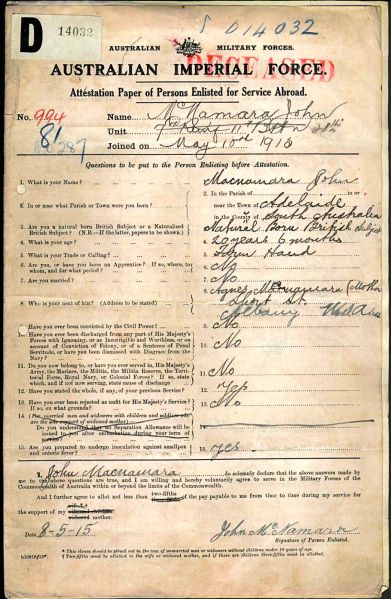 D 14032
D14032
AUSTRALIAN MILITARY FORCES.
DECEASED
AUSTRALIAN IMPERIAL FORCE.
Attestation Paper of Persons Enlisted for Service Abroad.
No. 994
81
Name McNamara John
Unit 11 Battn
Joined on May 10th 1915
Questions to be put to the Person Enlisting before Attestation.
1. What is your Name? 1. Macnamara John
2. In or near what Parish or Town were you born? 2. In the Parish of in or
near the Town of Adelaide
in the County of South Australia
3. Are you a natural born British Subject or a Naturalized British Subject? (N.B.—If the latter, papers to be shown.) 3. Natural Born British Subject
4. What is your age? 4. 20 years 6 months
5. What is your Trade or Calling? 5. Farm Hand
6. Are you, or have you been an Apprentice? If so, where, to whom, and for what period? 6. No
7. Are you married? 7. No
8. Who is your next of kin? (Address to be stated) 8. Agnes Macnamara (Mother
St.
Albany
9. Have you ever been convicted by the Civil Power? 9. No
10. Have you ever been discharged from any part of His Majesty's Forces with Ignominy, or as Incorrigible and Worthless, or on account of Conviction of Felony, or of a Sentence of Penal Servitude, or have you been dismissed with Disgrace from the Navy? 10. No
11. Do you now belong to, or have you ever served in, His Majesty's Army, the Marines, the Militia, the Militia Reserve, the Territorial Force, Royal Navy, or Colonial Forces? If so, state which, and if not now serving, state cause of discharge 11. No
12. Have you stated the whole, if any, of your previous Service? 12. Yes
13. Have you ever been rejected as unfit for His Majesty's Service? If so, on what grounds? 13. No
14. (For married men and widowers with children and soldiers who are the sole support of widowed mother)—
Do you understand that no Separation Allowance will be issued to you after embarkation during your term of 14.
15. Are you prepared to undergo inoculation against smallpox and enteric fever? 15. yes.
I, John Macnamara do solemnly declare that the above answers made by
me to the above questions are true, and I am willing and hereby voluntarily agree to serve in the Military Forces of the
Commonwealth of Australia within or beyond the limits of the Commonwealth.
And I further agree to allot not less than two-fifths of the pay payable to me from time to time during my service for
the support of my
widowed mother.
Date 8-5-15
John McNamara
Signature of Person Enlisted.
* This clause should be struck out in the case of unmarried men or widowers without children under 18 years of age.
† Two-fifths must be allotted to the wife or widowed mother, and if there are children three-fifths must be allotted.